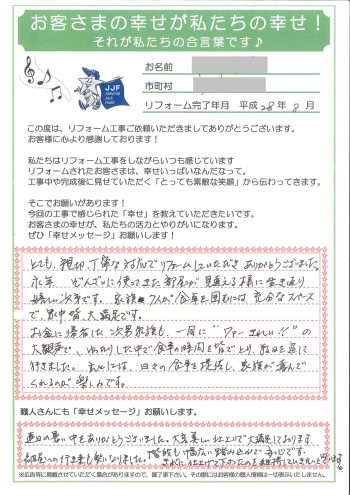 お客さまの幸せが私たちの幸せ！
それが私たちの合言葉です♪
JJF
お名前
市町村
リフォーム完了年月 平成28年8月
この度は、リフォーム工事ご依頼いただきましてありがとうございます。
お客様に心より感謝しております！
私たちはリフォーム工事をしながらいつも感じています
リフォームされたお客さまは、幸せいっぱいなんだなって。
工事中や完成後に見せていただく「とっても素敵な笑顔」から伝わってきます。
そこでお願いがあります！
今回の工事で感じられた「幸せ」を教えていただきたいです。
お客さまの幸せが、私たちの活力とやりがいになります。
ぜひ「幸せメッセージ」お願いします！
とても、親切、丁寧な対応でリフォームしていただきありがとうございました。
永年 ぞんざいに使ってきた部屋が見違える様に生き返り
嬉しい次第です。家族 7人が食卓を囲むには、充分なスペース
で、家中皆、大満足です。
お盆に帰省した、次男家族も、一同に“ワァーきれい!!”の
大歓声で、ゆったりした中で食事の時間も皆でとり、数日を過し
行きました。
日々の食事を提供し、家族が喜んで
くれるのが楽しみです。
職人さんにも「幸せメッセージ」お願いします。
連日の暑い中をありがとうございました。大変美しい仕上りで大満足しております
階段も幅広い踏み込みで安心です。
※広告等に掲載させていただく場合がありますので、留意ご了承下さい。その際にはお客様の個人情報は一切表示いたしません。